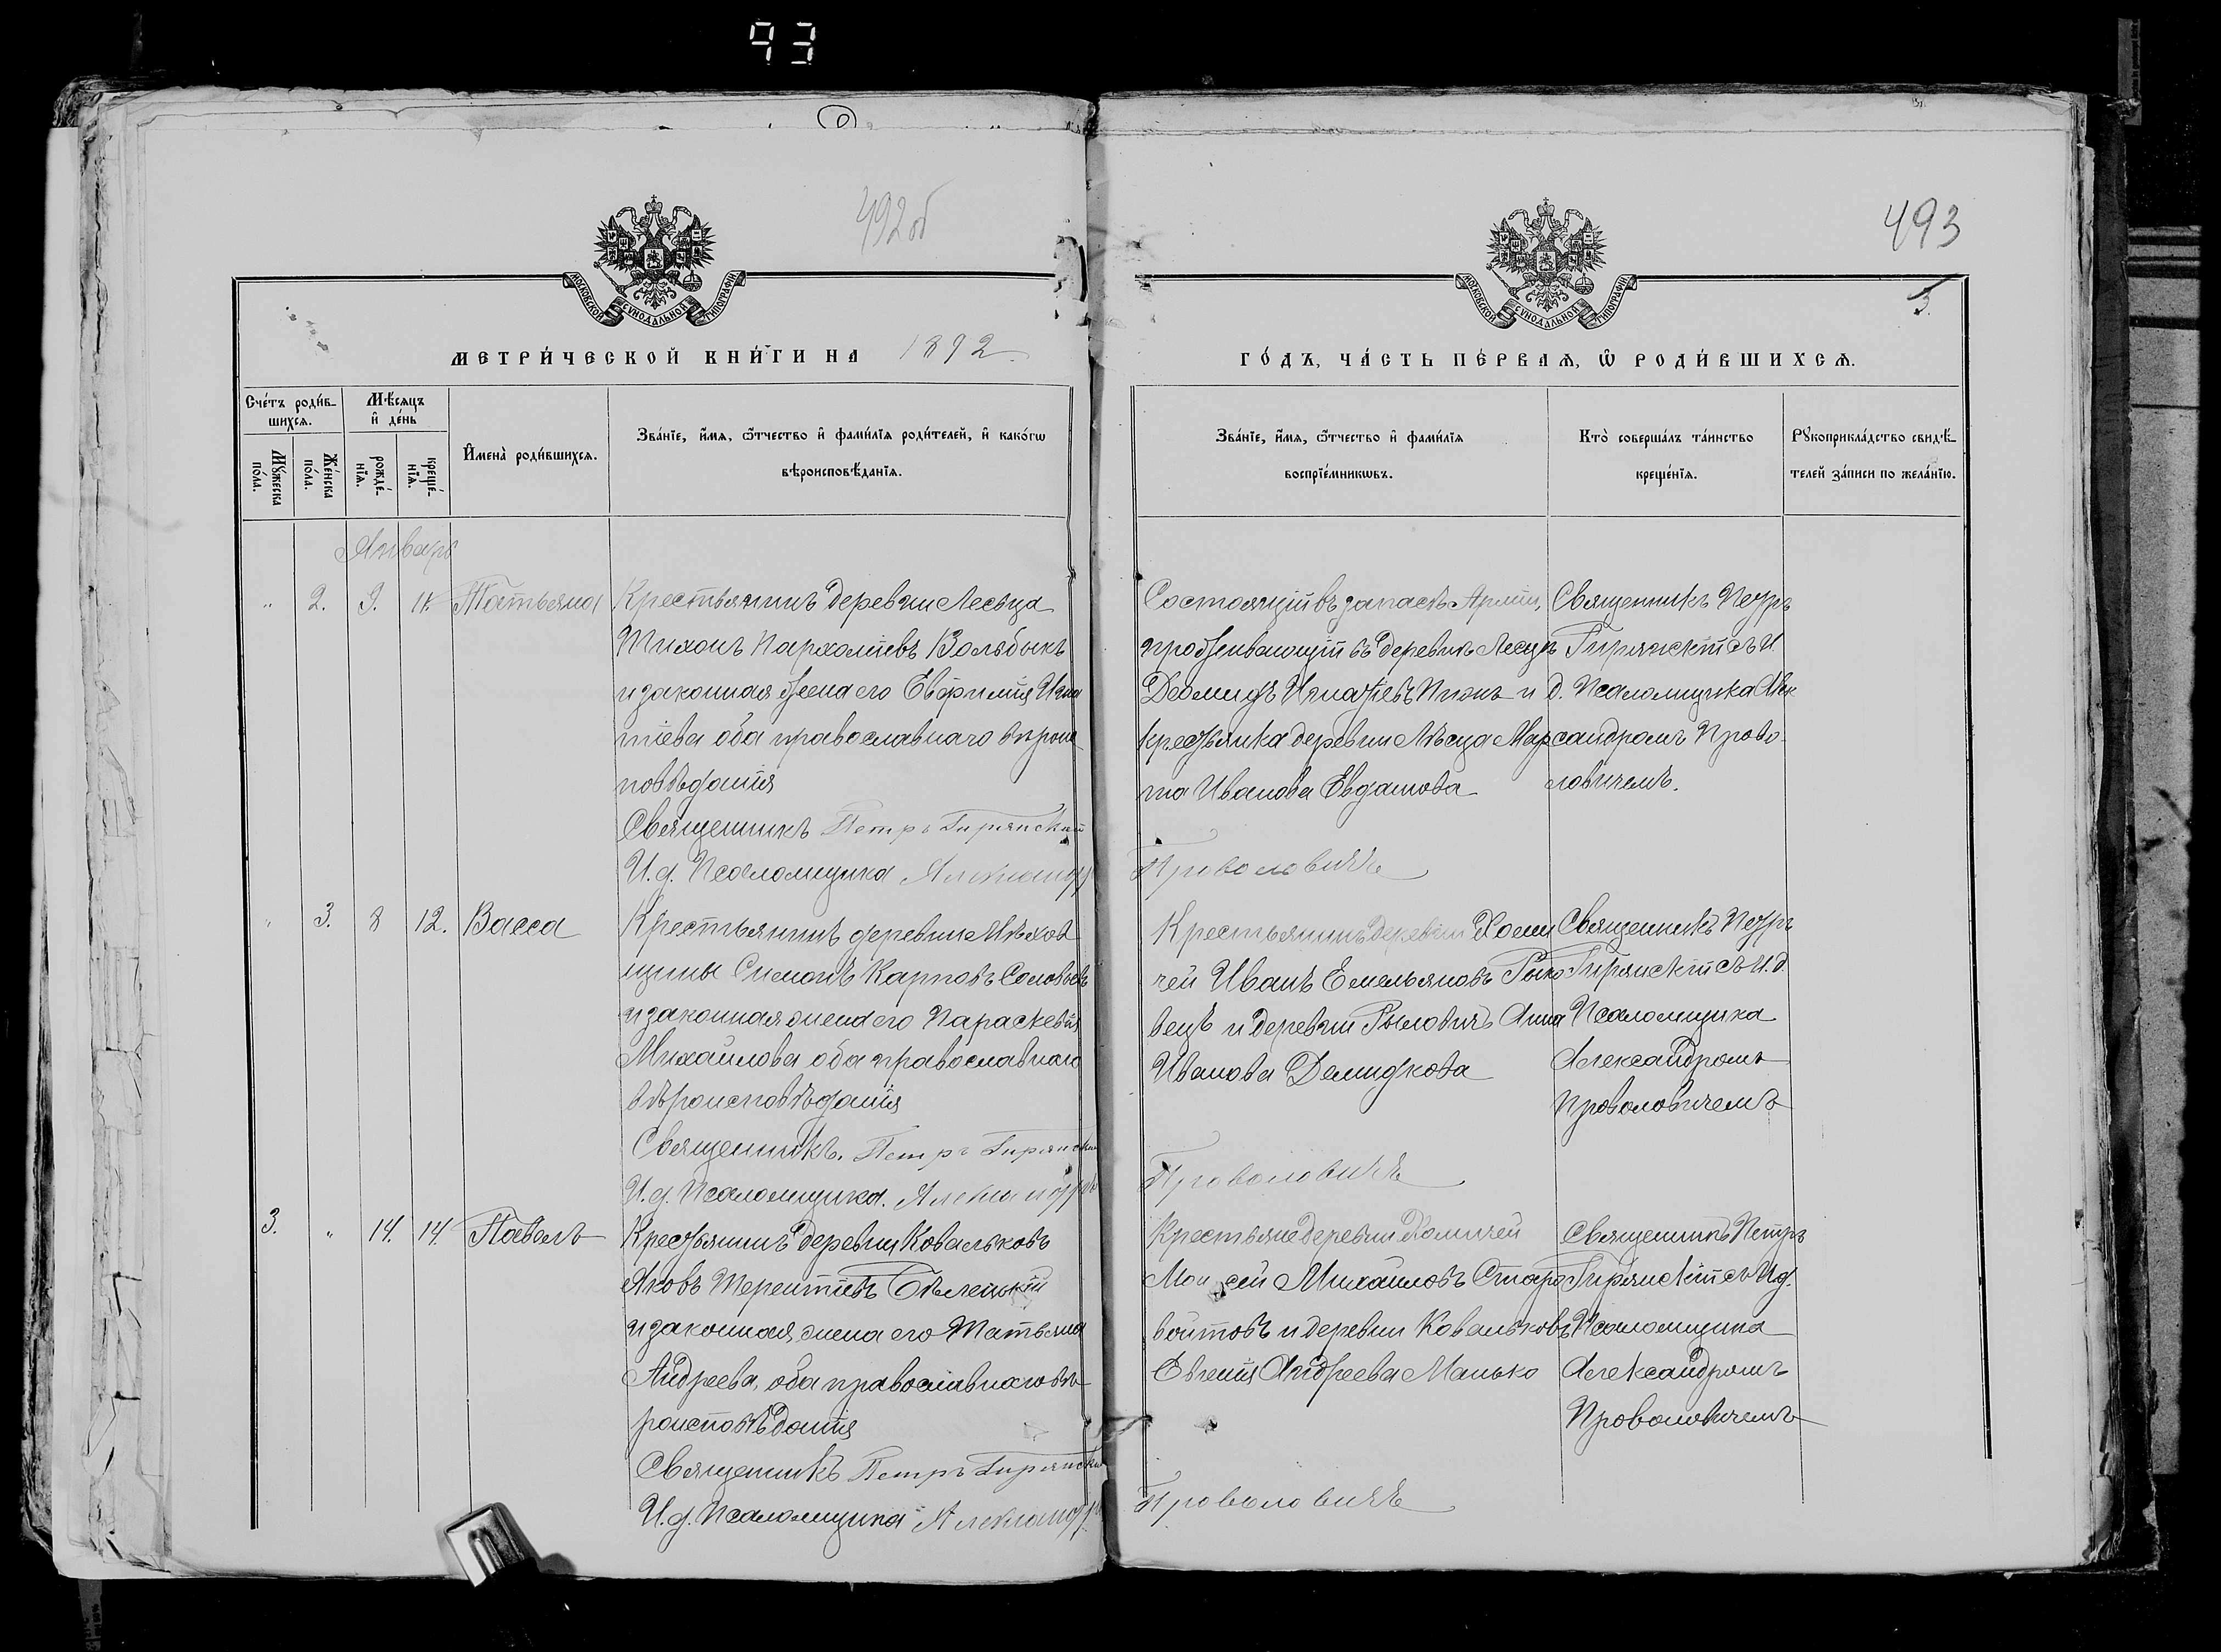 93
492об
493
3.
МОСКОВСКОЙ СѴНОДАЛЬНОЙ ТИПОГРАФІИ
МОСКОВСКОЙ СѴНОДАЛЬНОЙ ТИПОГРАФІИ
МЕТРИ́ЧЕСКОЙ КНИ́ГИ НА 1892
ГО́ДЪ, ЧА́СТЬ ПЕ́РВАѦ, Ѡ҆ РОДИ́ВШИХСѦ.
Сче́тъ роди́в-
шихсѧ.
Мꙋ́жеска по́ла.
Же́нска по́ла.
Мѣ́сѧцъ
и҆ де́нь
рожде́-
нїѧ.
креще́-
нїѧ.
И҆мена̀ роди́вшихсѧ.
Зва́нїе, и҆́мѧ, ѻ҆́тчество и҆ фами́лїѧ роди́телей, и҆ како́гѡ
вѣроисповѣ́данїѧ.
Зва́нїе, и҆́мѧ, ѻ҆́тчество и҆ фами́лїѧ
воспрїе́мникѡвъ.
Кто̀ соверша́лъ та́инство
креще́нїѧ.
Рꙋкоприкла́дство свидѣ́-
телей за́писи по жела́нїю.
Январь
" 2. 9. 11. Татьяна
Крестьянинъ деревни Лесьца
Тихонъ Пархоміевъ Волобыкъ
и законная жена его Евфимія Игна
тіева оба православнаго вѣроис-
повѣданія
Священникъ Петръ Гирянскій
И.д. Псаломщика Александръ
Состоящій въ запасѣ Арміи,
проживающій въ деревнѣ Лесцѣ
Деомидъ Игнатіевъ и
крестьянка деревни Лѣсца Мар
та Иванова Евдамова
Проволовичъ
Священникъ Петръ
Гирянскій съ И.
д. Псаломщика Алек
сандромъ Прово-
ловичемъ.
" 3. 8 12. Васса
Крестьянинъ деревни Мѣхов
щины Симонъ Карповъ Соловьевъ
и законная жена его Параскевія
Михайлова оба православнаго
вѣроисповѣданія
Священникъ. Петръ Гирянскій
И.д. Псаломщика. Александръ
Крестьянинъ деревни Хоми
чей Иванъ Емельяновъ Рыко
вецъ и деревни Рыловичъ Анна
Иванова Демидкова
Проволовичъ
Священникъ Петръ
Гирянскій съ И.д.
Псаломщика
Александромъ
Проволовичемъ
3. " 14. 14. Павелъ
Крестьянинъ деревни Ковальковъ
Яковъ Терентіевъ Бѣлецькій
и законная жена его Татьяна
Андреева, оба православнаго вѣ-
роисповѣданія
Священникъ Петръ Гирянскій
И.д. Псаломщика Александръ
Крестьяне деревни Хомичей
Моисей Михайловъ Старо
войтовъ и деревни Ковальковъ
Евгенія Андреева Манько
Проволовичъ
Священникъ Петръ
Гирянскій съ И.д.
Псаломщика
Александромъ
Проволовичемъ